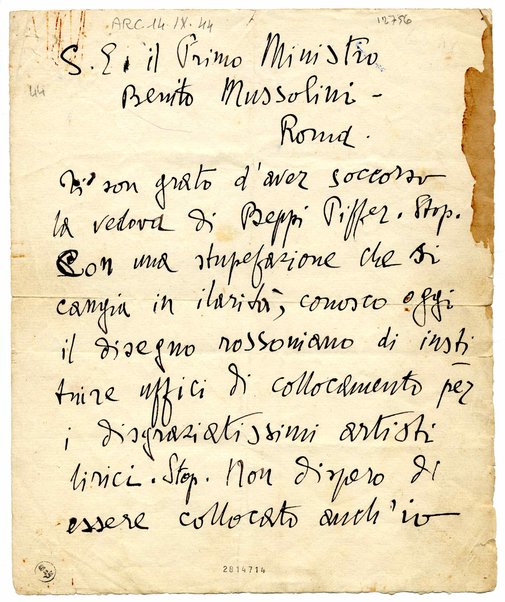 ARC. 14 IX. 44
12756
44
S. E. il Primo Ministro
Benito Mussolini -
Roma.
Ti son grato d'aver soccorso
la vedova di Beppi Piffer. Stop.
Con una stupefazione che si
cangia in ilarità, conosco oggi
il disegno rossoniano di insti
tuire uffici di collocamento per
i disgraziatissimi artisti
lirici. Stop. Non dispero di
essere collocato anch'io
2814714